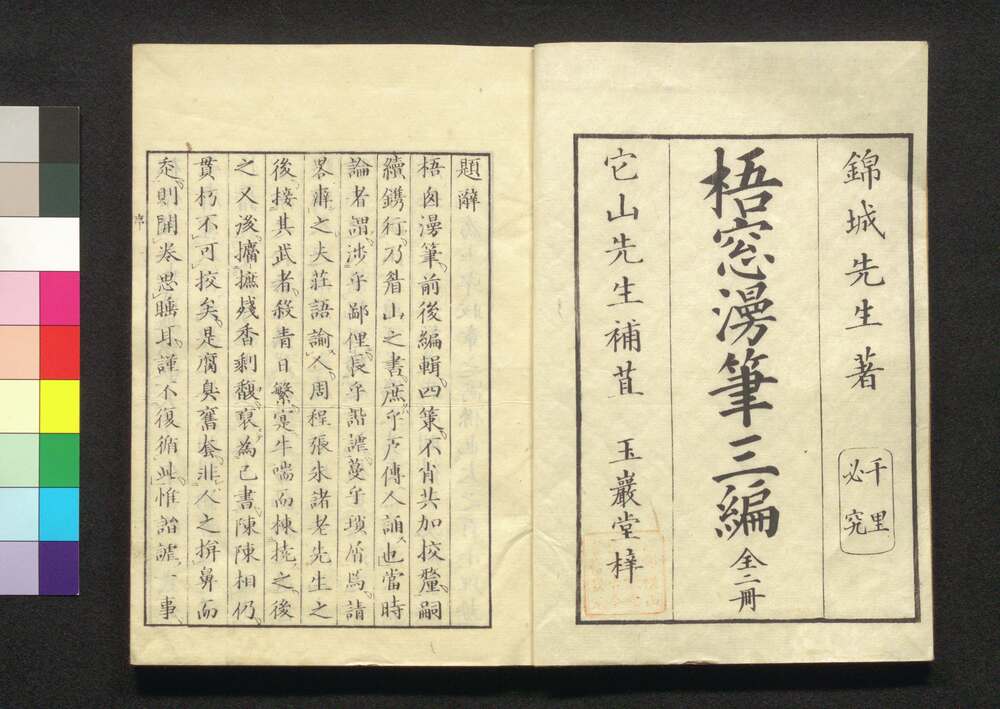 錦城先生著
千里
必究
梧窓漫筆三編
全二冊
它山先生補苴 玉巖堂梓
題辭
梧囱漫筆前後編輯四䇿不肖共加挍釐嗣
續鐫行乃眉山之書庶乎戶傳人誦也當時
論者謂涉乎鄙俚長乎諧謔蔓乎瑣屑爲請
畧癬之夫莊語諭人周程張朱諸老先生之
後接其武者殺青日繁寔牛喘而棟撓之後
之又後攟摭殘香剩馥裒為己書陳陳相仍
貫朽不可挍矣是腐臭舊套非人之揜鼻而
走則開卷思睡耳謹不復循此惟詼謔一事
序